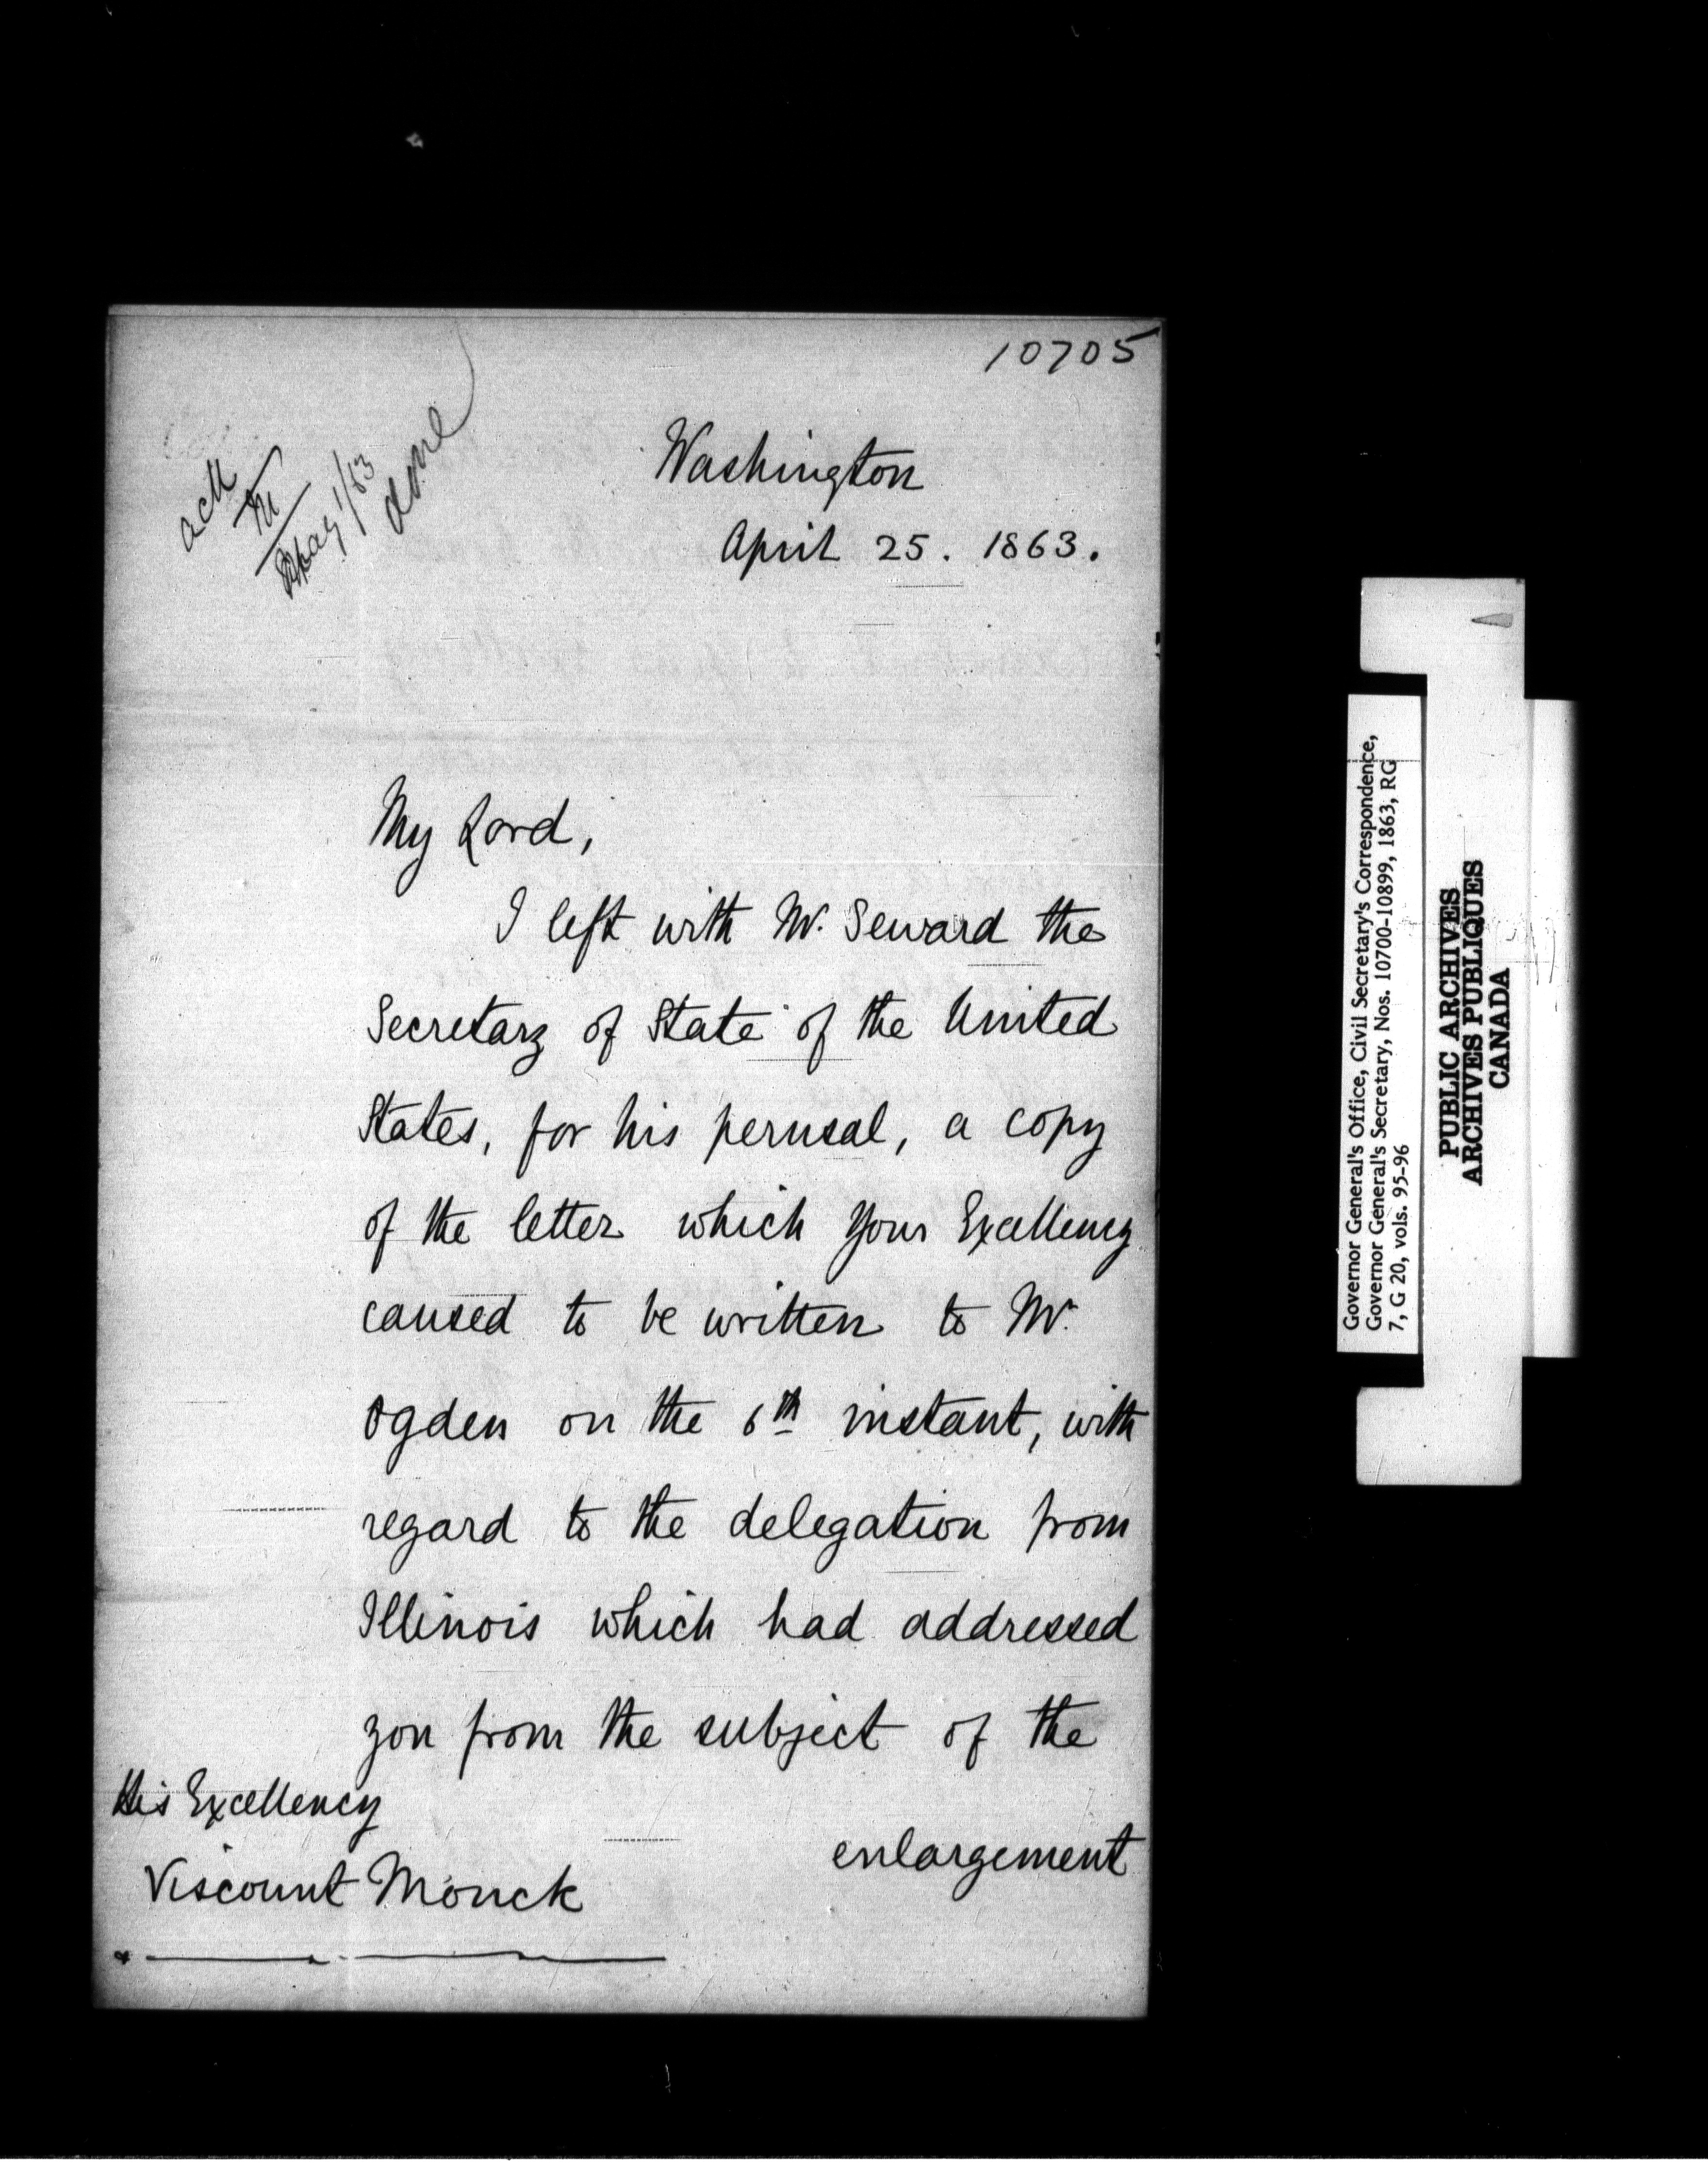 10705
ack
M
May 1/63
done
Washington
April 25. 1863.
My Lord,
I left with Mr. Seward the
Secretary of State of the United
States, for his perusal, a copy
of the letter which your Excellency
caused to be written to Mr.
Ogden on the 6th instant, with
regard to the delegation from
Illinois which had addressed
you from the subject of the
enlargement
His Excellency
Viscount Monck
Governor General's Office, Civil Secretary's Correspondence,
Governor General's Secretary, Nos. 10700-10899, 1863, RG
7, G 20, vols. 95-96
PUBLIC ARCHIVES
ARCHIVES PUBLIQUES
CANADA